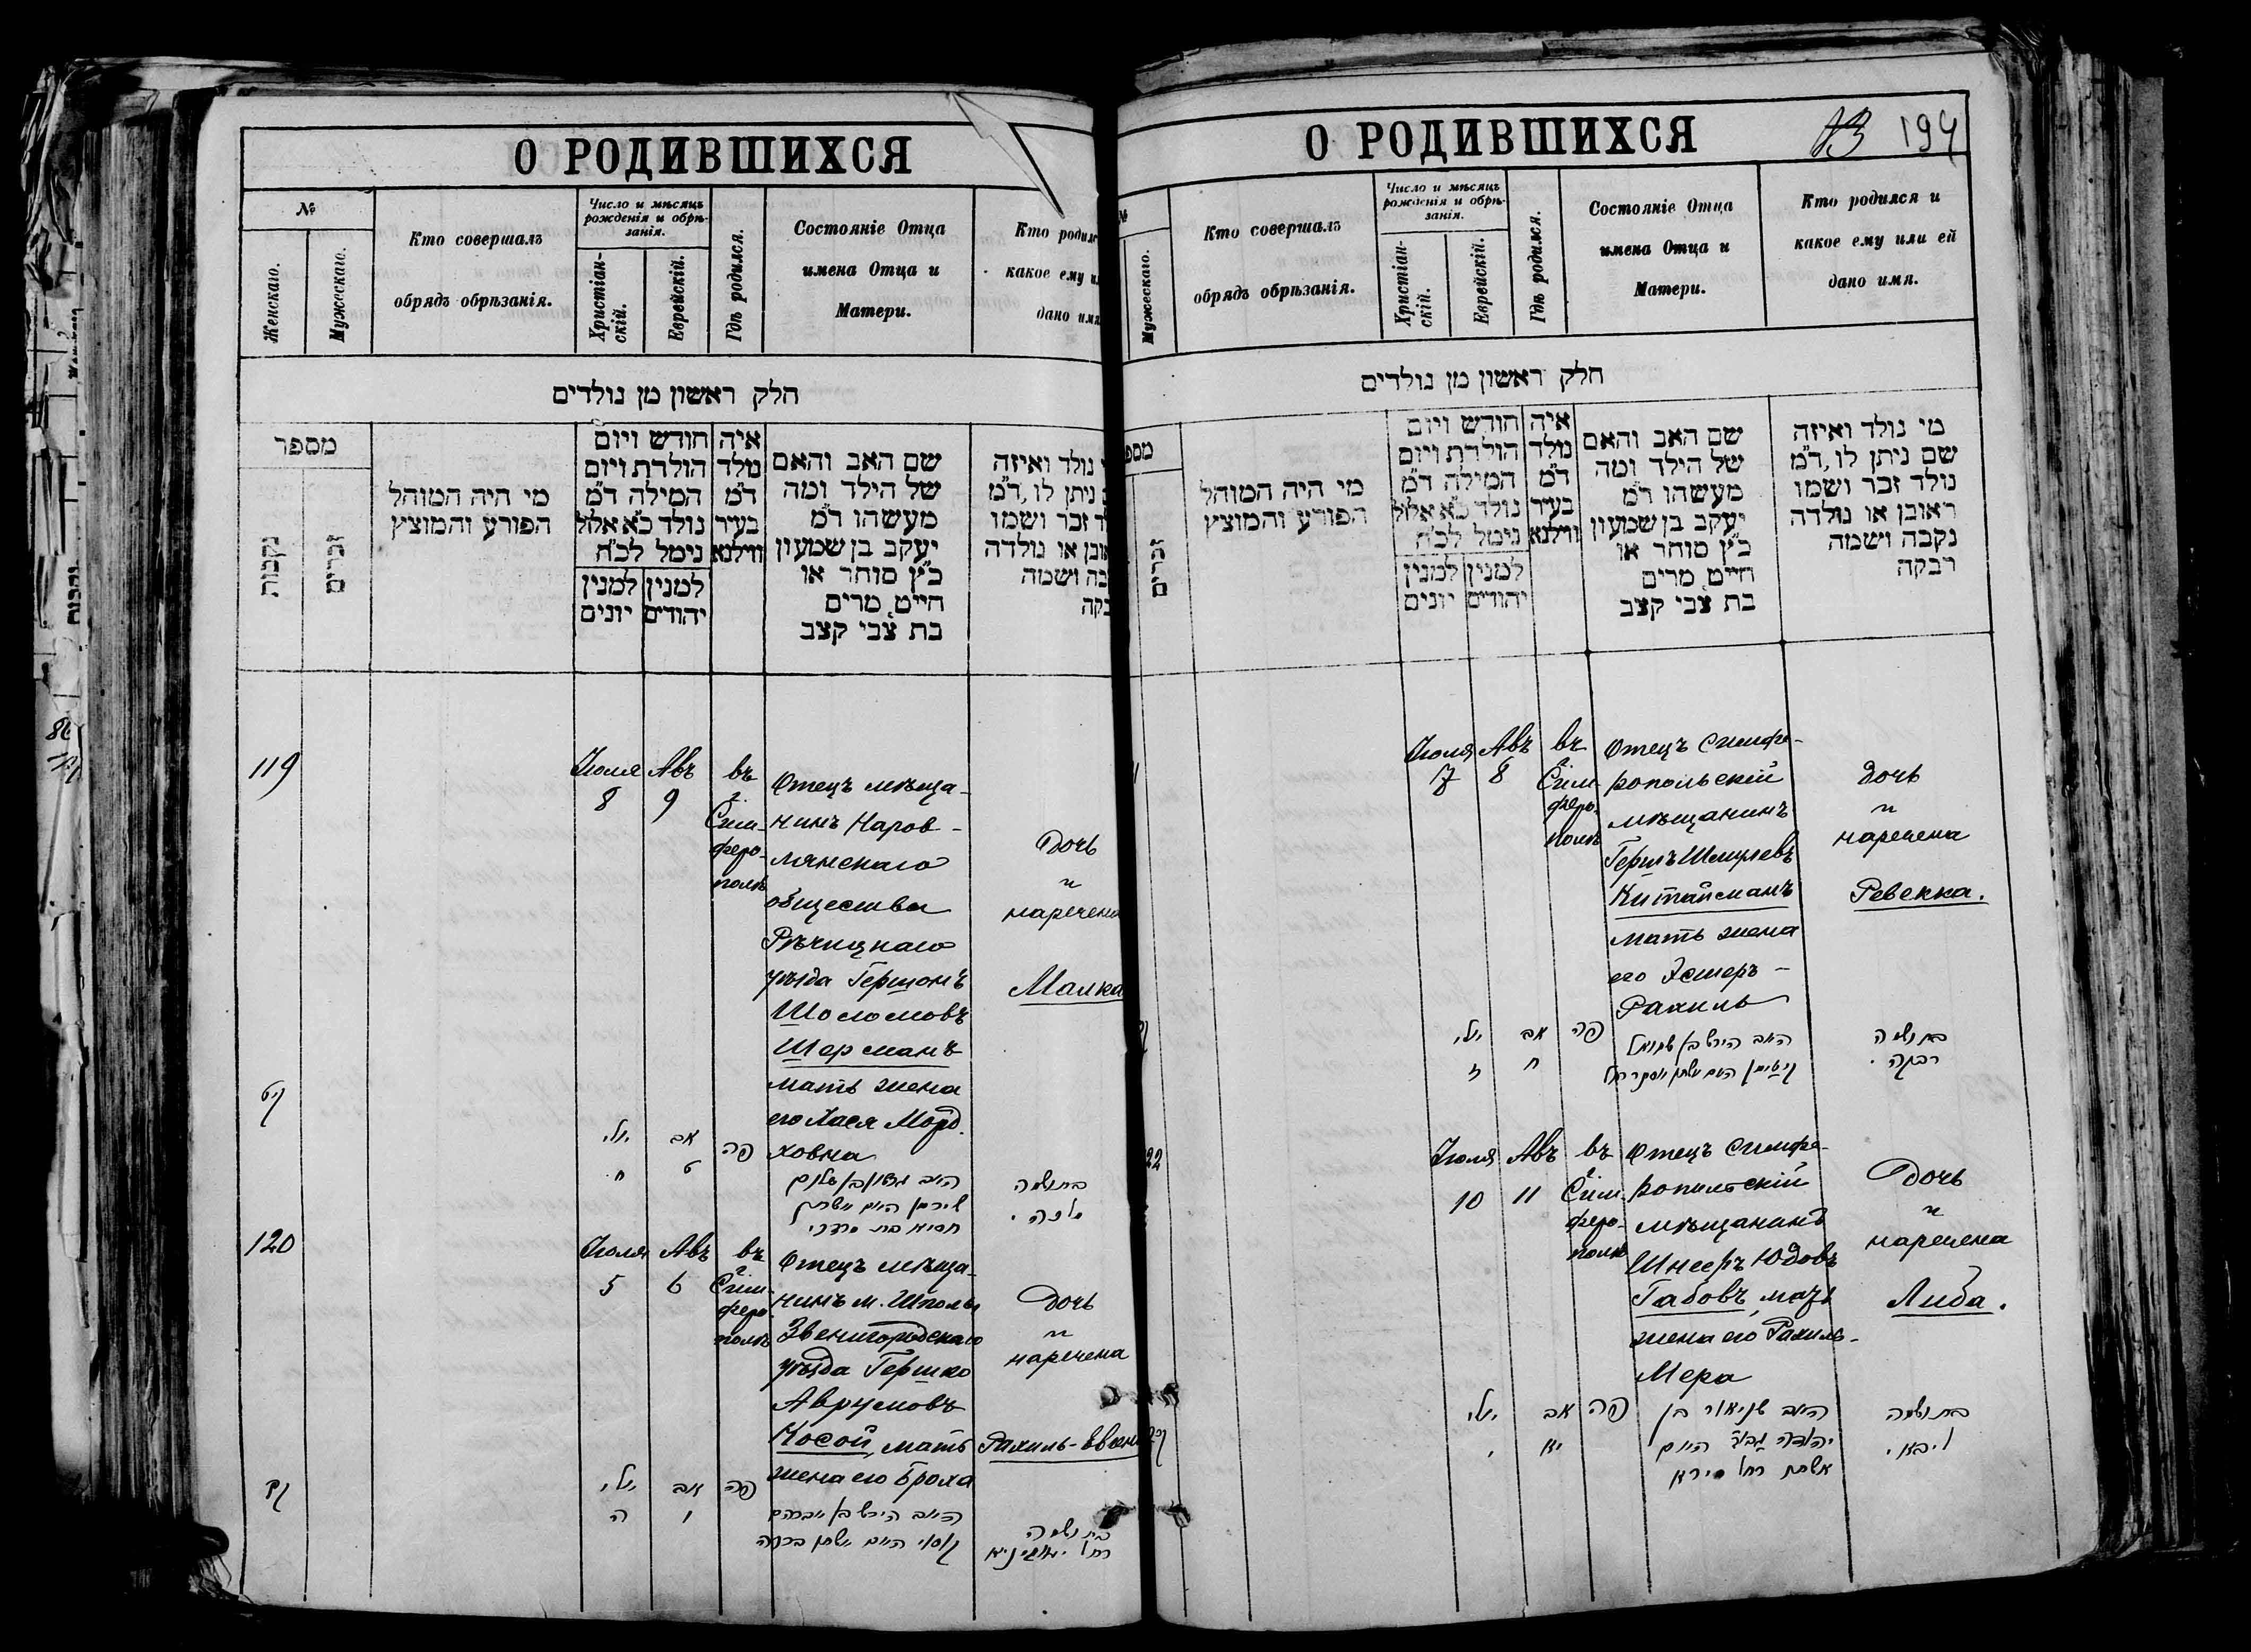 О РОДИВШИХСЯ
№
Женскаго.
Мужескаго.
Кто совершалъ
обрядъ обрѣзанія.
Число и мѣсяцъ
рожденія и обрѣ-
занія.
Христіан-
скій.
Еврейскій.
Гдѣ родился.
Состояніе Отца
имена Отца и
Матери.
Кто родилс
какое ему и
дано имя
חלק ראשון מן נולדים
מספר
נקבות
זכרים
מי היה המוהל
הפורע והמוצץ
חודש ויום
הולדת ויום
המילה ד״מ
נולד כ״א אלול
נימל לכ״ח
למנין
יהודים
למנין
יונים
איה
נולד
ד״מ
בעיר
ווילנא
שם האב והאם
של הילד ומה
מעשהו ד״מ
יעקב בן שמעון
כ״ץ סוחר או
חייט, מרים
בת צבי קצב
נולד ואיזה
ניתן לו, ד״מ
זכר ושמו
או נולדה
ושמה
119
Іюля
8
Авъ
9
въ
г.
Сим-
феро-
полѣ
Отецъ мѣща-
нинъ Наров-
лянскаго
общества
Рѣчицкаго
уѣзда Гершонъ
Шоломовъ
Шерманъ
мать жена
его Хася Морд-
ховна
Дочь
и
наречена
Малка
קיט
יולי
ח
אב
ט
פה
האב גרשון בן שלום
שירמן האם אשתו
חסיא בת מרדכי
בת ושמה
מלכה.
120
Іюля
5
Авъ
6
въ
г.
Сим-
феро-
полѣ
Отецъ мѣща-
нинъ м. Шполы
Звенигородскаго
уѣзда Гершко
Аврумовъ
Косой, мать
жена его Броха
Дочь
и
наречена
Рахиль-Евгені
קכ
יולי
ה
אב
ו
פה
האב הירש בן אברהם
קוסוי האם אשתו ברכה
בת ושמה
О РОДИВШИХСЯ
194
№
Мужескаго.
Кто совершалъ
обрядъ обрѣзанія.
Число и мѣсяцъ
рожденія и обрѣ-
занія.
Христіан-
скій.
Еврейскій.
Гдѣ родился.
Состояніе Отца
имена Отца и
Матери.
Кто родился и
какое ему или ей
дано имя.
חלק ראשון מן נולדים
מספ
זכרים
מי היה המוהל
הפורע והמוצץ
חודש ויום
הולדת ויום
המילה ד״מ
נולד כ״א אלול
נימל לכ״ח
למנין
יהודים
למנין
יונים
איה
נולד
ד״מ
בעיר
ווילנא
שם האב והאם
של הילד ומה
מעשהו ד״מ
יעקב בן שמעון
כ״ץ סוחר או
חייט, מרים
בת צבי קצב
מי נולד ואיזה
שם ניתן לו, ד״מ
נולד זכר ושמו
ראובן או נולדה
נקבה ושמה
ריבקה
Іюля
7
Авъ
8
въ
г.
Сим-
феро-
полѣ
Отецъ Симфе-
ропольскій
мѣщанинъ
Гершъ Шмулевъ
Китайсманъ
мать жена
его Эстеръ-
Рахиль
Дочь
и
наречена
Ревекка.
יולי
ז
אב
ח
פה
האב הירש בן שמואל
בת ושמה
רבקה.
22
Іюля
10
Авъ
11
въ
г.
Сим-
феро-
полѣ
Отецъ Симфе-
ропольскій
мѣщанинъ
Шнееръ Юдовъ
Габовъ, мать
жена его Рахиль-
Мера
Дочь
и
наречена
Либа.
יולי
י
אב
יא
פה
האב שניאור בן
יהודה גבוב האם
אשתו רחל מירא
בת ושמה
ליבא.